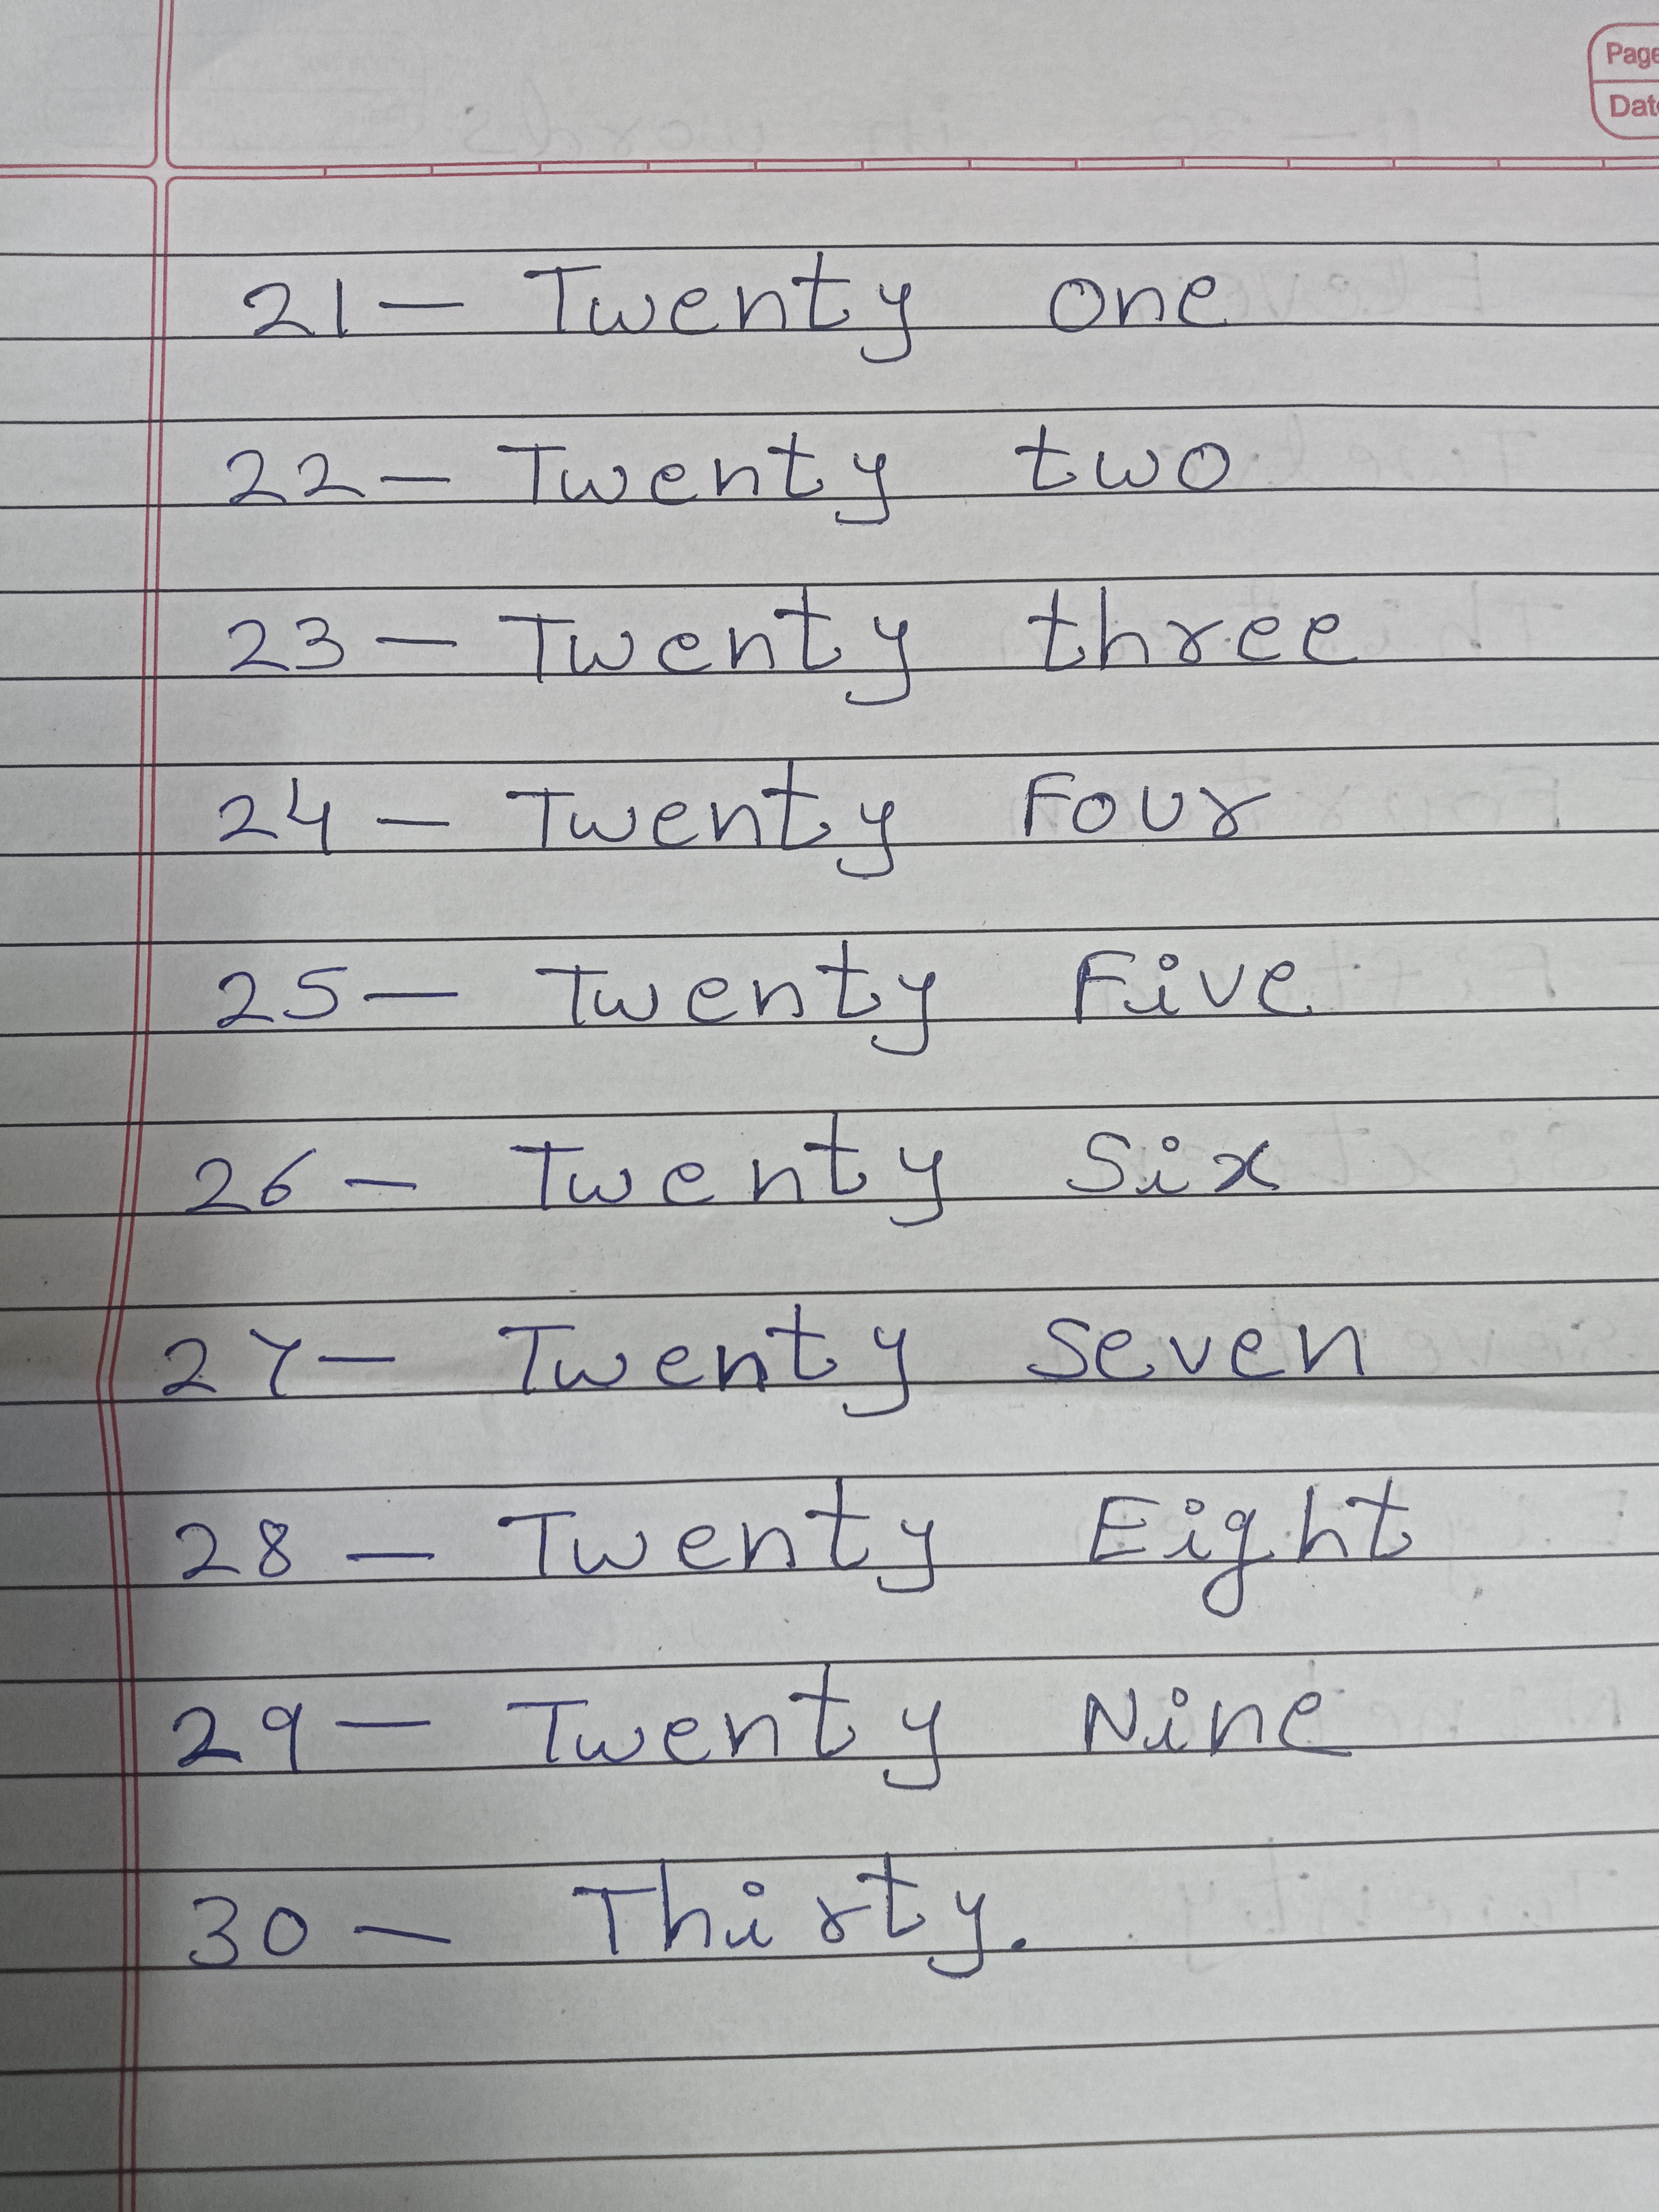 Page
Date
21 — Twenty one
22 — Twenty two
23 — Twenty three
24 — Twenty Four
25 — Twenty Five
26 — Twenty Six
27 — Twenty Seven
28 — Twenty Eight
29 — Twenty Nine
30 — Thirty.